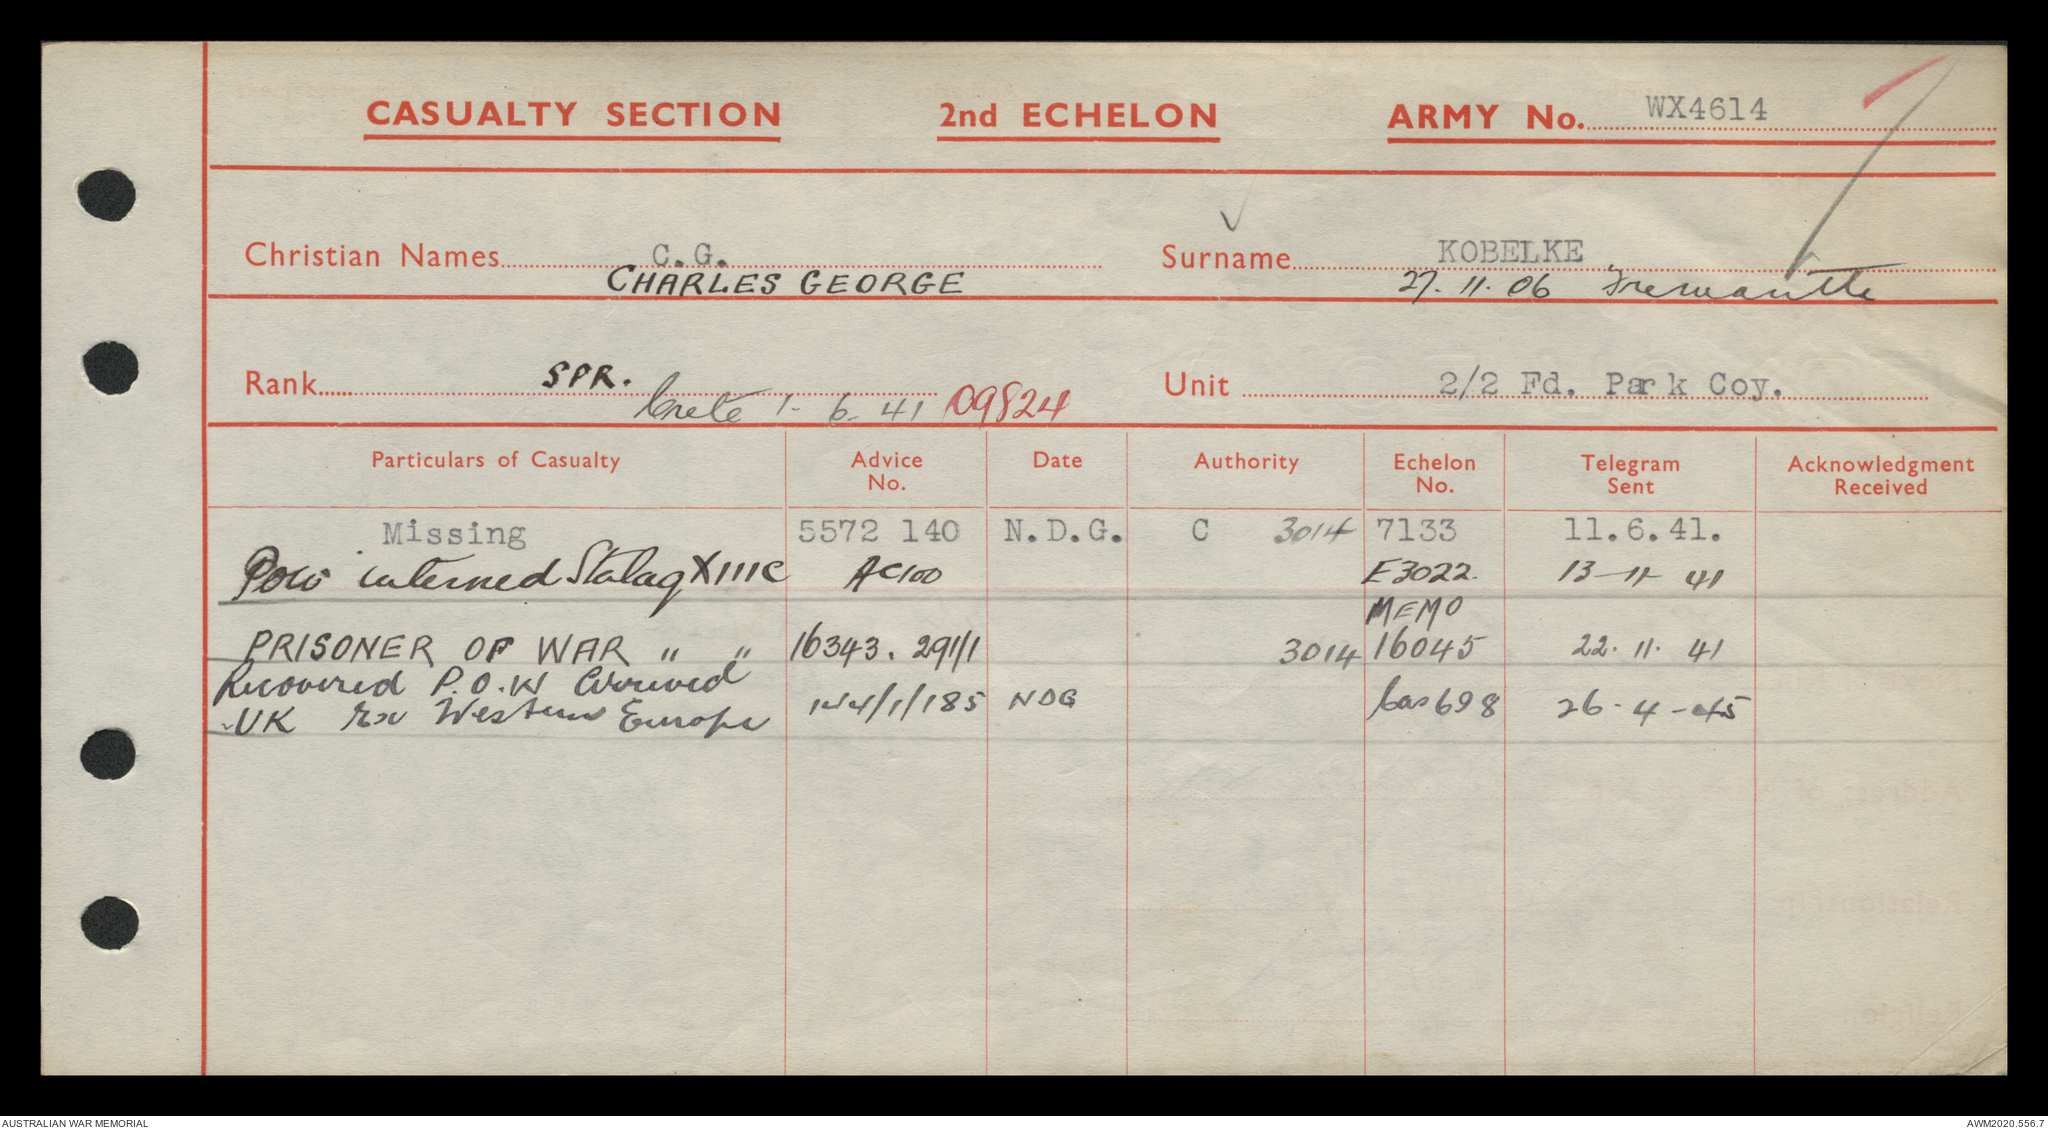 CASUALTY SECTION 2nd ECHELON ARMY No. WX4614
Christian Names C.G. Surname KOBELKE
CHARLES GEORGE 27.11.06 Fremantle
Rank SPR. Unit 2/2 Fd. Park Coy.
Crete 1-6-41 09824
Particulars of Casualty Advice No. Date Authority Echelon No. Telegram Sent Acknowledgment Received
Missing 5572 140 N.D.G. C 3014 7133 11.6.41.
Pow interned Stalag XIIIC AC100 E3022. 13-11-41
MEMO
PRISONER OF WAR " " 16343. 291/1 3014 16045 22.11.41
Recovered P.O.W Arrived
UK Ex Western Europe /1/185 NDG Cas698 26-4-45
AUSTRALIAN WAR MEMORIAL AWM2020.556.7